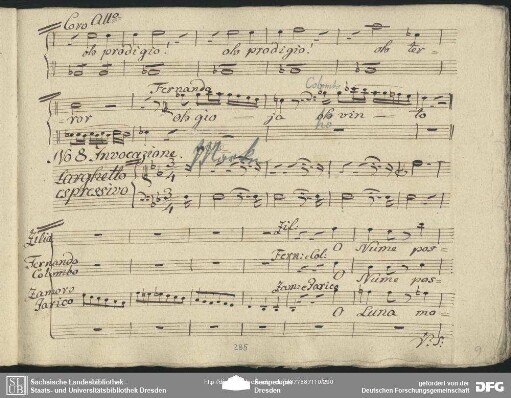 Coro Allo
oh prodigio! oh prodigio! oh ter=
Fernando Colombo
=ror oh gio - ja oh vin - to
ho
No 8. Invocazione
Larghetto
espressivo
Zilia Zil:
O Nume pos=
Fernando Fern: e Col:
Colombo O Nume pos=
Zamoro Zam: e Jarico
Jarico O Luna ma=
285
V: S:
Sächsische Landesbibliothek
Staats- und Universitätsbibliothek Dresden
gefördert von der
Deutschen Forschungsgemeinschaft
DFG